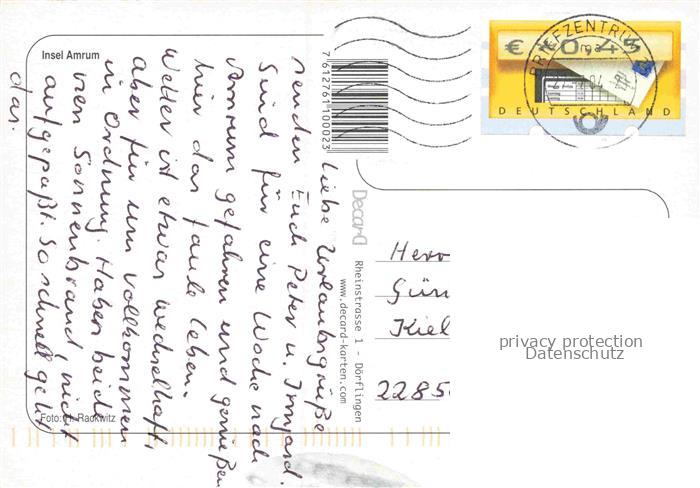 Insel Amrum
Liebe Urlaubsgrüße
senden Euch Peter u. Irmgard.
Sind für eine Woche nach
Amrum gefahren und genießen
hier das faule Leben.
Wetter ist etwas wechselhaft,
aber für uns vollkommen
in Ordnung. Haben beide
nen Sonnenbrand, nicht
aufgepaßt. So schnell geht
das.
Foto: H. Raokwitz
7612761100023
Decard
Rheinstrasse 1 - Dörflingen
www.decard-karten.com
BRIEFZENTRUM
€ *0,45
DEUTSCHLAND
Herr
Gün
Kiel
2285
privacy protection
Datenschutz